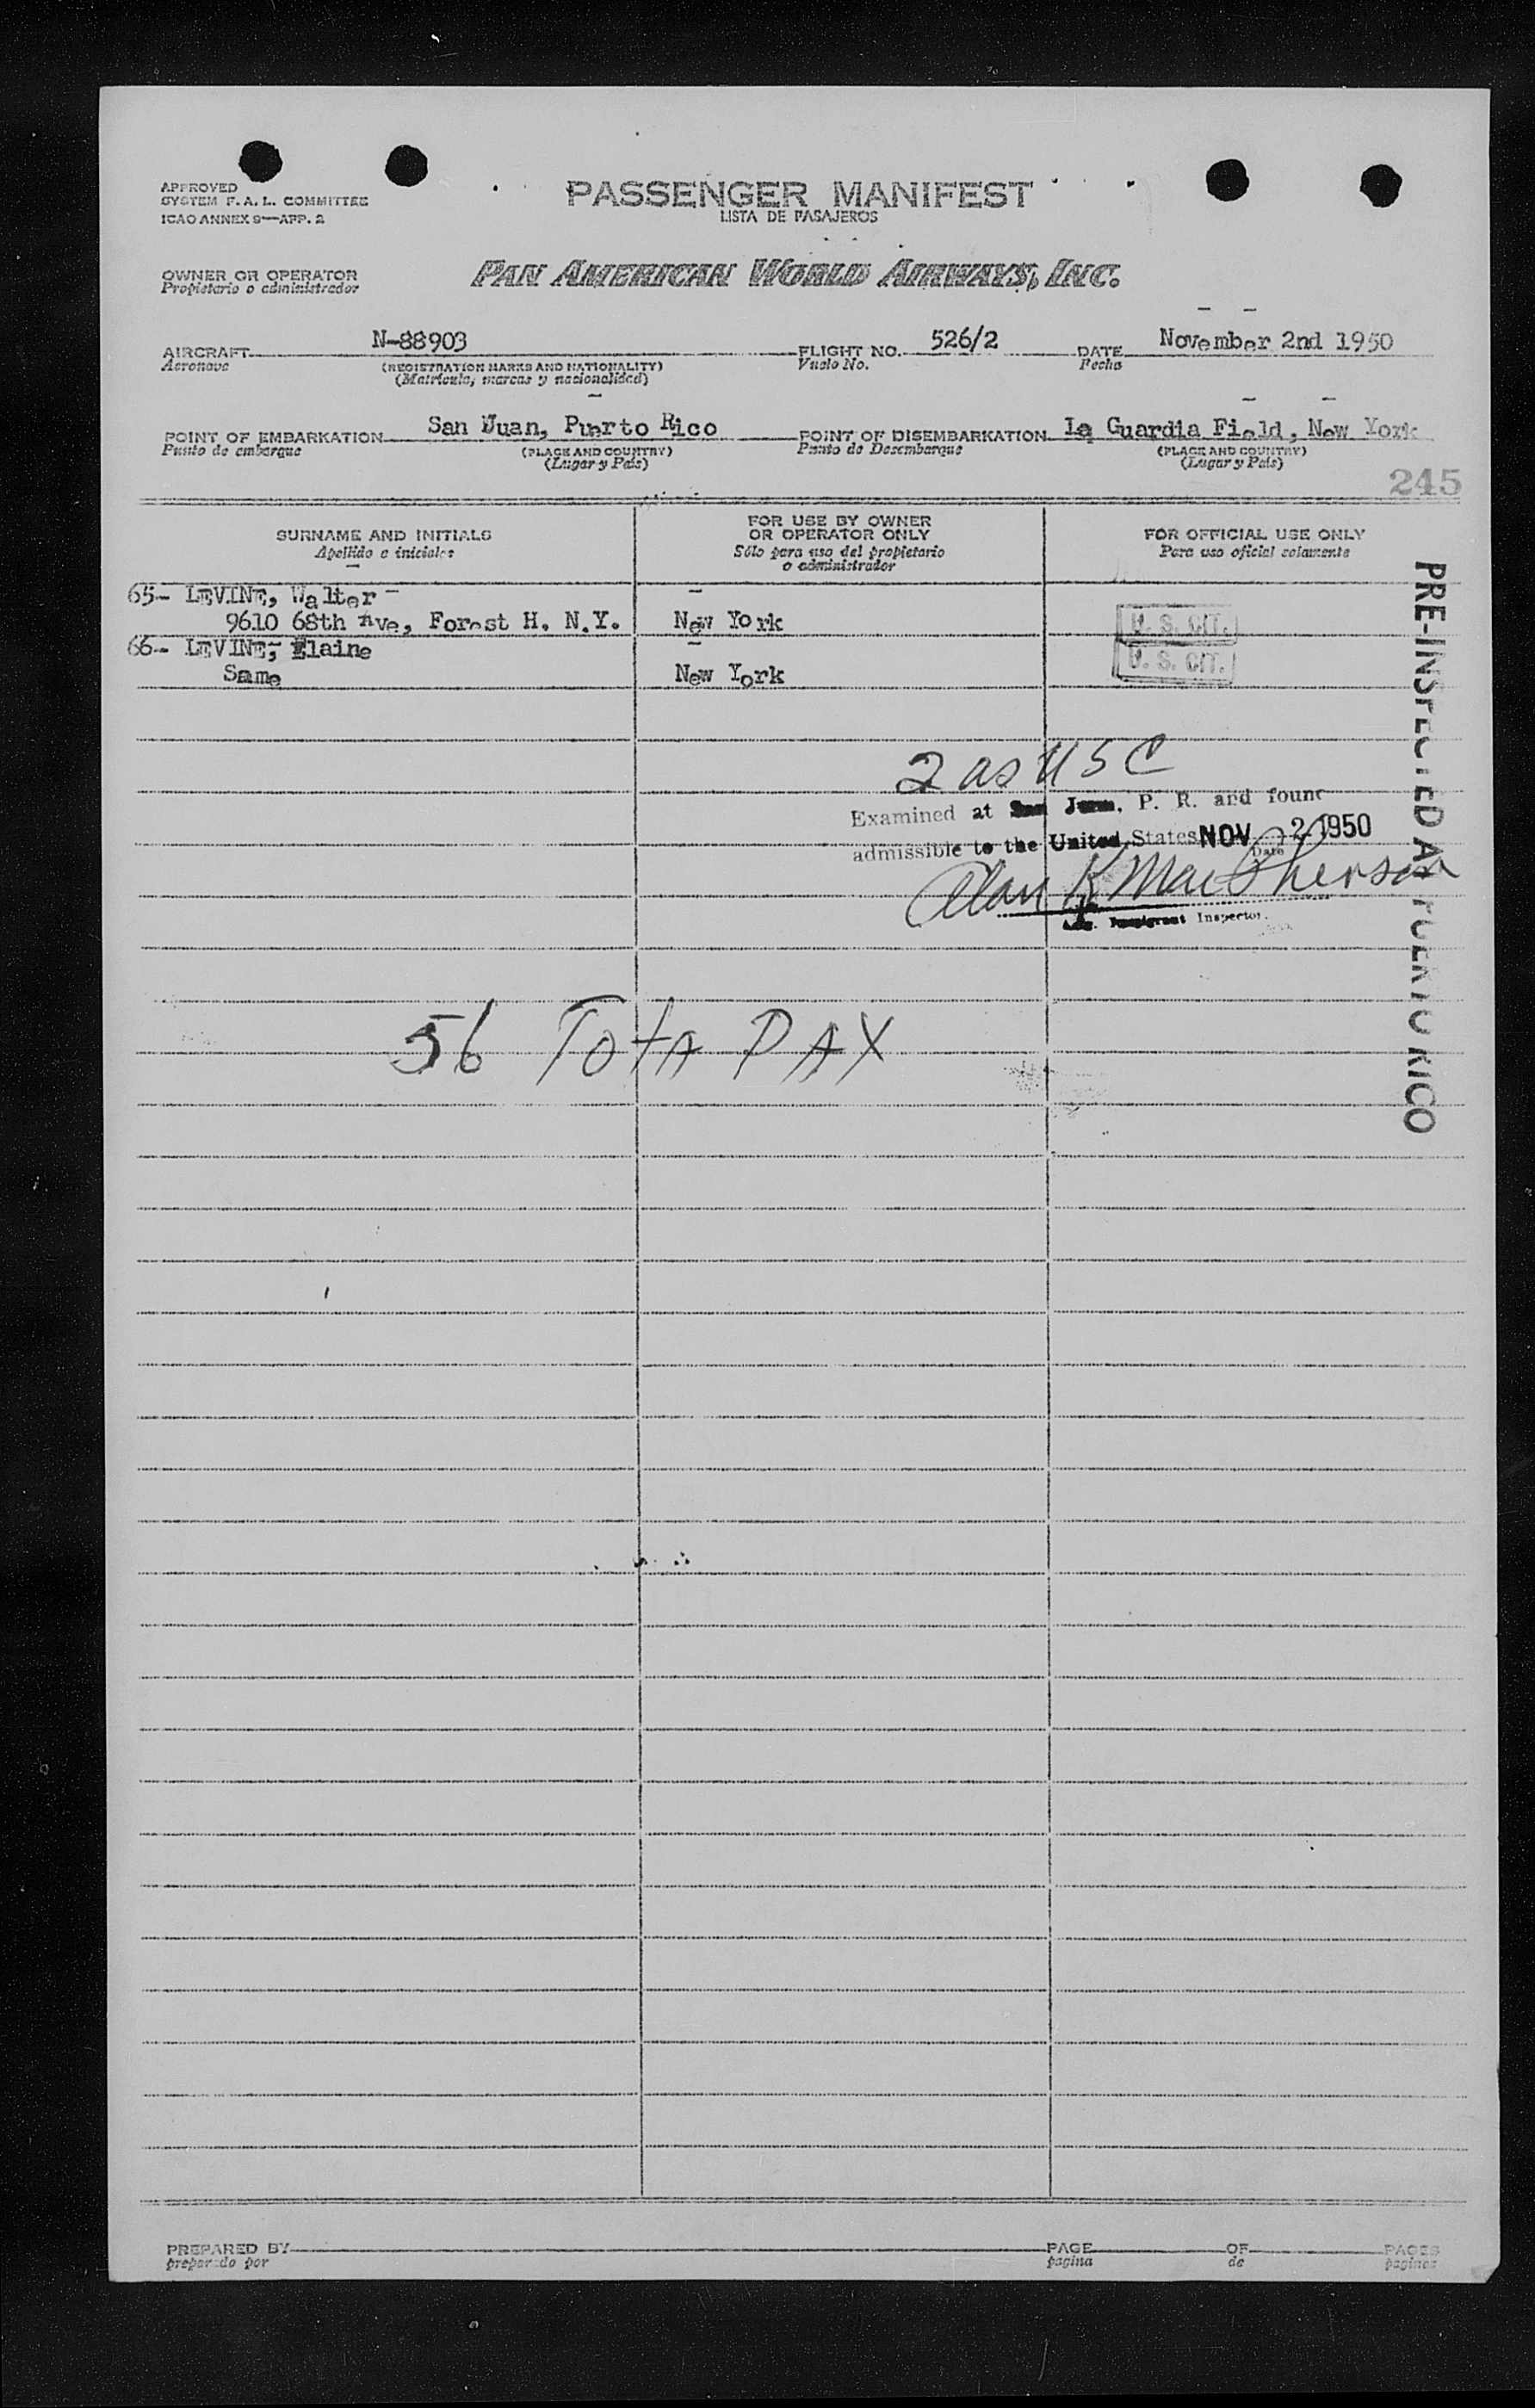 APPROVED
SYSTEM F. A. L. COMMITTEE
ICAO ANNEX 9—APP. 2
PASSENGER MANIFEST
LISTA DE PASAJEROS
OWNER OR OPERATOR
Propietario o administrador
PAN AMERICAN WORLD AIRWAYS, INC.
AIRCRAFT N-88903 FLIGHT NO. 526/2 DATE November 2nd 1950
Aeronave (REGISTRATION MARKS AND NATIONALITY) Vuelo No. Fecha
(Matrícula, marcas y nacionalidad)
POINT OF EMBARKATION San Juan, Puerto Rico POINT OF DISEMBARKATION La Guardia Field, New York
Punto de embarque (PLACE AND COUNTRY) Punto de Desembarque (PLACE AND COUNTRY)
(Lugar y País) (Lugar y País)
245
SURNAME AND INITIALS
Apellido e iniciales
FOR USE BY OWNER
OR OPERATOR ONLY
Sólo para uso del propietario
o administrador
FOR OFFICIAL USE ONLY
Para uso oficial solamente
65- LEVINE, Walter
9610 68th Ave, Forest H. N.Y. New York U. S. CIT.
66- LEVINE, Elaine U. S. CIT.
Same New York
PRE-INSPECTED AT PUERTO RICO
2 as U S C
Examined at San Juan, P. R. and found
admissible to the United States NOV 2 1950
Date
Alan K MacPherson
Immigrant Inspector.
56 Tota PAX
PREPARED BY PAGE OF PAGES
preparado por pagina de paginas